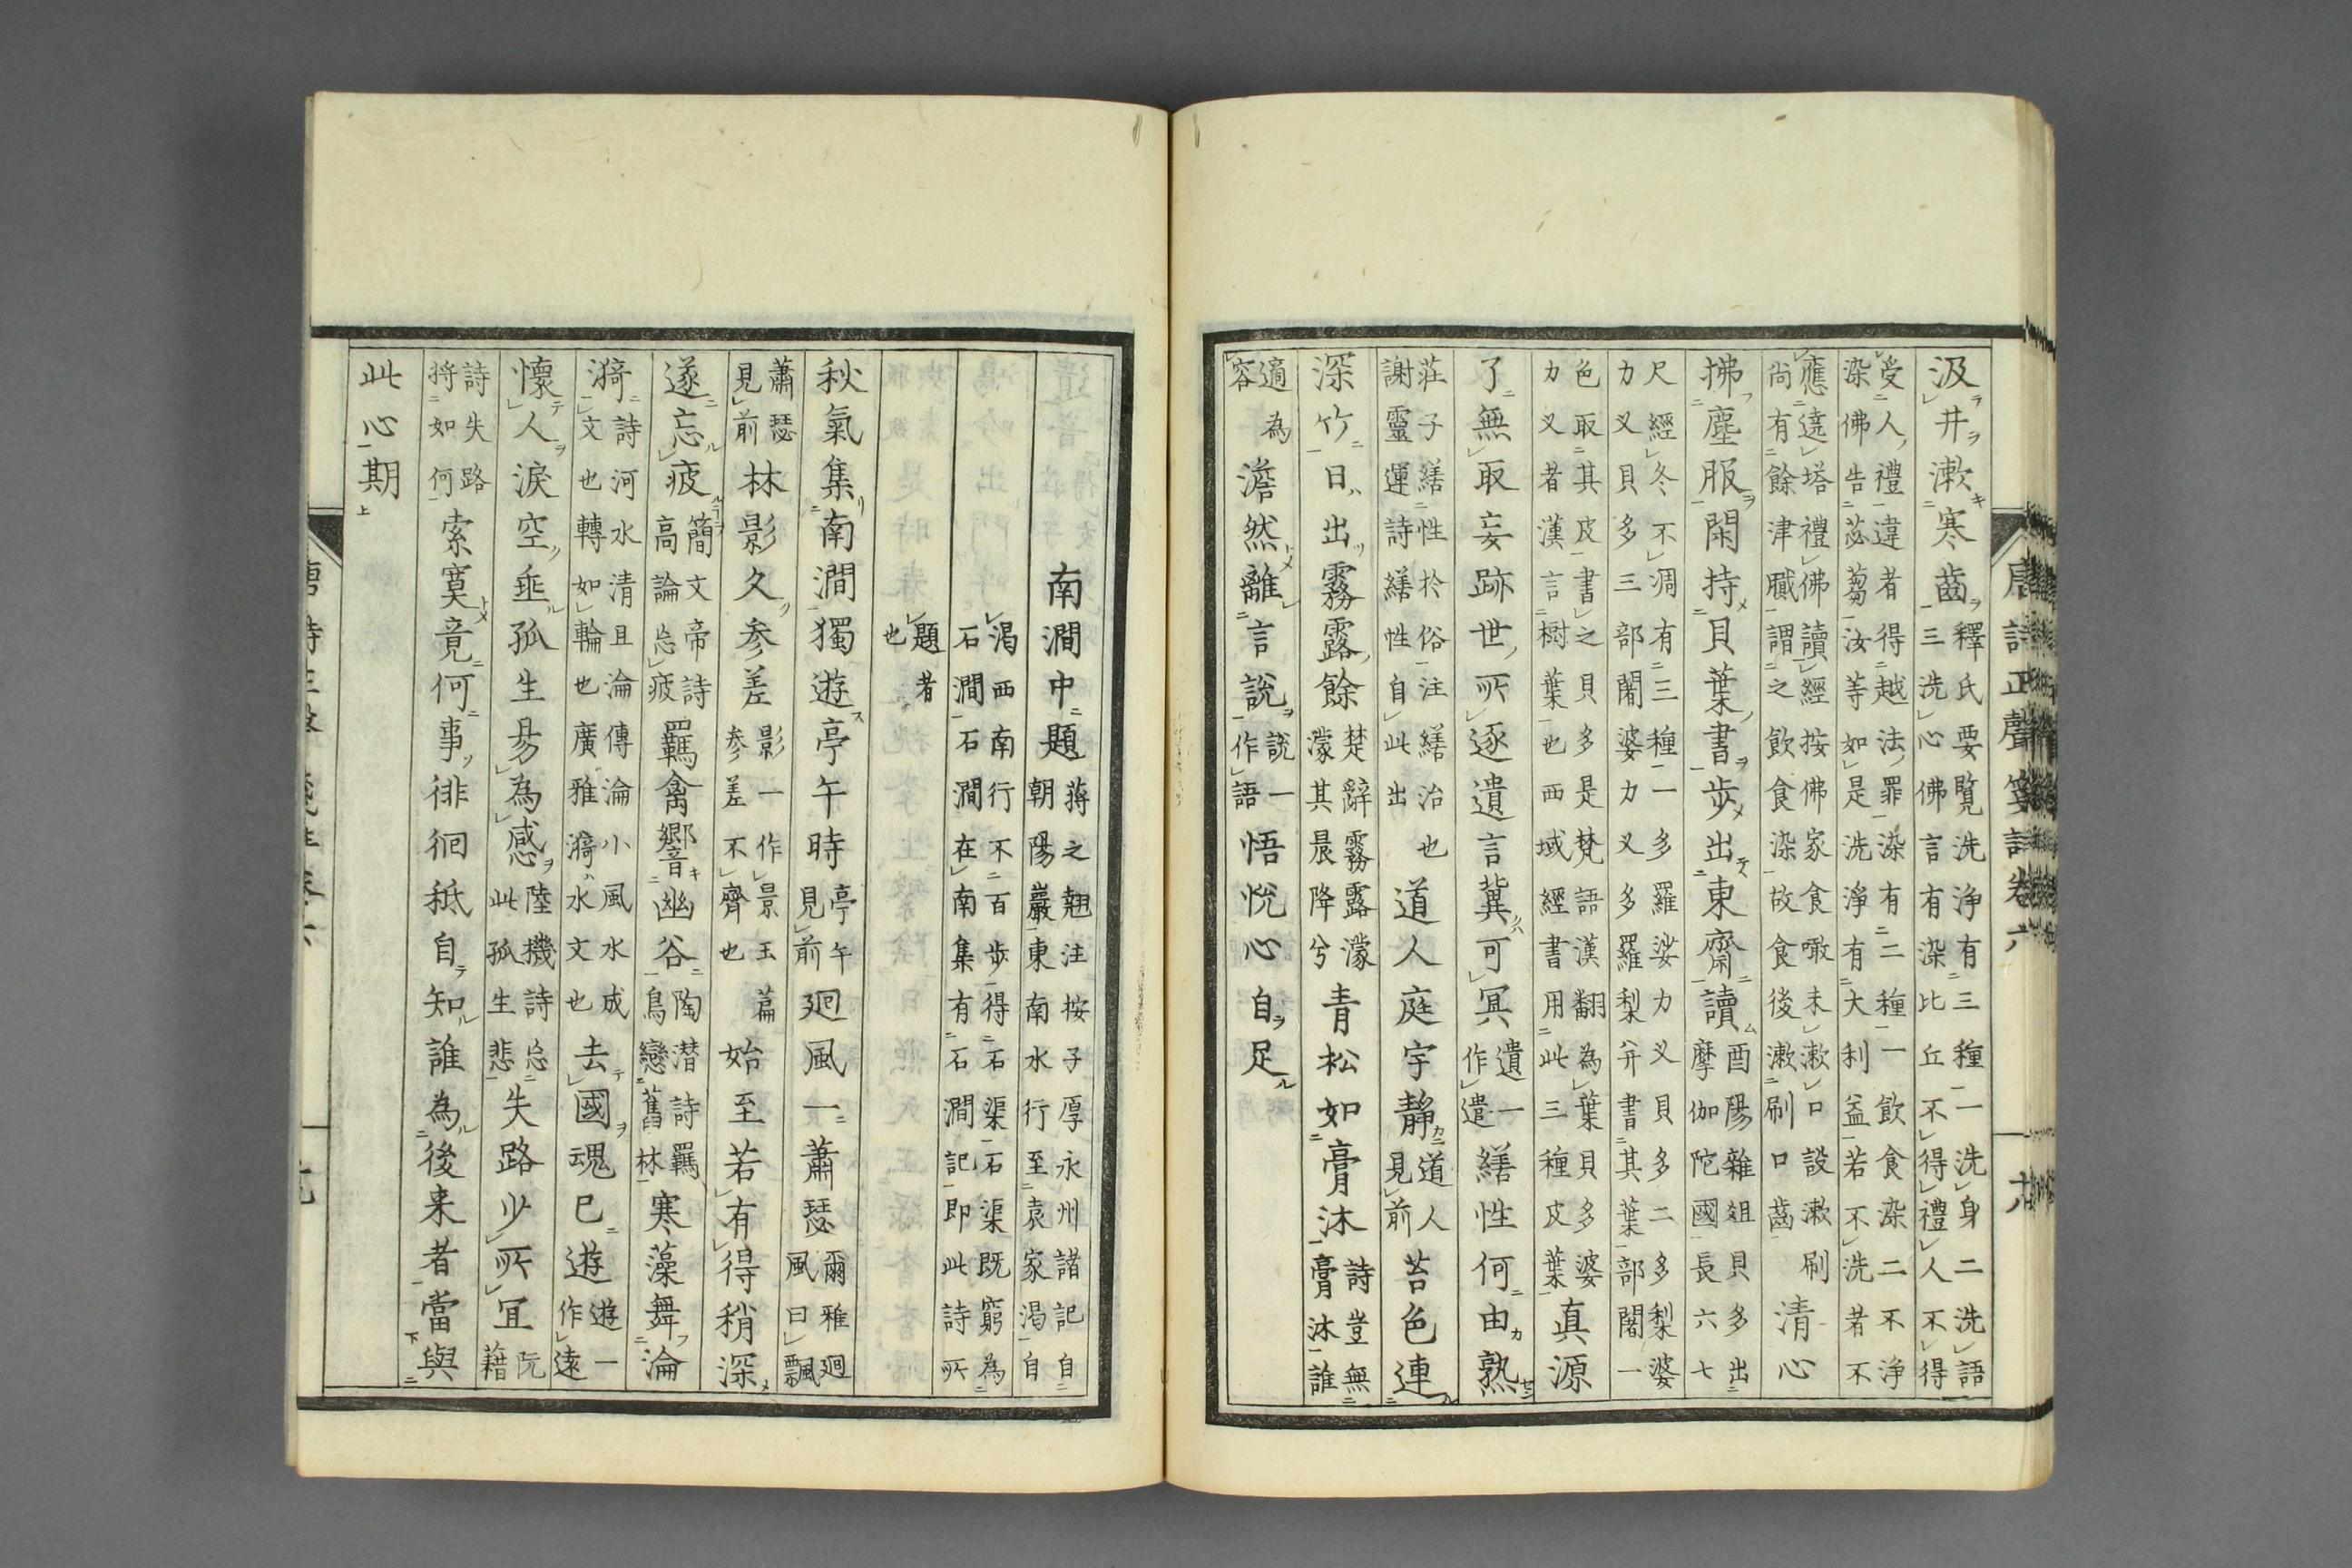 唐詩正聲箋註卷六
汲井漱寒齒釋氏要覧洗浄有三種一洗身二洗語三洗心佛言有染比丘不得禮人不得
受人禮違者得越法罪染有二種一飲食染二不浄染佛告苾蒭汝等如是洗浄有大利益若不洗者不
應遶塔禮佛讀經按佛家食噉未漱口設漱刷尚有餘津膩謂之飲食染故食後漱刷口齒清心
拂塵服閑持貝葉書步出東齋讀酉陽雜俎貝多出摩伽陀國長六七
尺經冬不凋有三種一多羅娑力叉貝多二多梨婆力叉貝多三部闍婆力叉多羅梨并書其葉部闍一
色取其皮書之貝多是梵語漢翻為葉貝多婆力叉者漢言樹葉也西域經書用此三種皮葉真源
了無取妄跡世所逐遺言冀可冥遺一作遣繕性何由熟
莊子繕性於俗注繕治也謝靈運詩繕性自此出道人庭宇靜道人見前苔色連
深竹日出霧露餘楚辭霧露濛濛其晨降兮青松如膏沐詩豈無膏沐誰
適為容澹然離言說說一作語悟悅心自足
南澗中題蔣之翹注按子厚永州諸記自朝陽巖東南水行至袁家渴自
渴西南行不百步得石渠石渠既窮為石澗石澗在南集有石澗記即此詩所
題者也
秋氣集南澗獨遊亭午時亭午見前廻風一蕭瑟爾雅廻風曰飄
蕭瑟見前林影久参差影一作景玉篇参差不齊也始至若有得稍深
遂忘疲簡文帝詩高論忘疲羈禽響幽谷陶潜詩羈鳥戀舊林寒藻舞淪
漪詩河水清且淪傳淪小風水成文也轉如輪也廣雅漪水文也去國魂已遊遊一作遠
懷人淚空垂孤生易為感陸機詩忽此孤生悲失路少所宜阮藉
詩失路將如何索寞竟何事徘徊秪自知誰為後来者當與
此心期